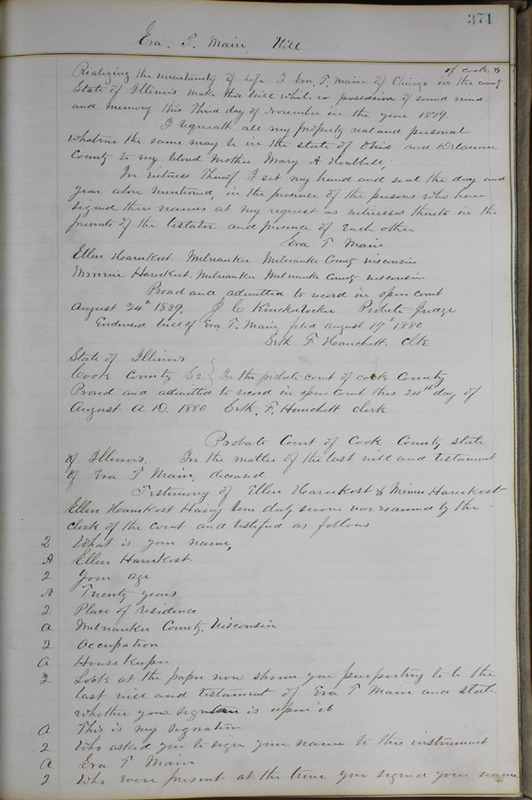 371
Eva. T. Main Will
of cook &
Realizing the uncertainty of life I Eva, T, Main of Chicago in the county
State of Illinois make this will while in possession of sound mind
and memory this third day of November in the year 1879.
I bequeath all my property real and personal
whatever the same may be in the state of Ohio and Delaware
County to my blind Mother Mary A
In witness Thereof I set my hand and seal the day and
year above mentioned, in the presence of the persons who have
signed their names at my request as witnesses thereto in the
presents of the testator and presence of Each other
Eva T Main
Ellen Milwaukee Milwaukee County Wisconsin
Minnie Milwaukee Milwaukee County Wisconsin
Proved and admitted to record in open court
August 24th J. C. Knickerbocker Probate Judge
Endorsed will of Eva T. Main filed August 19th 1880
Seth F Hanchett. Clk
State of Illinois
Cook County In the probate court of cook County
Proved and admitted to record in open court this 24th day of
August A D. 1880 Seth. F. Hanchett Clerk
Probate Court of Cook County state
of Illinois. In the matter of the last will and testament
of Eva T Main, deceased
Testimony of Ellen & Minnie
Ellen Having been duly sworn was examined by the
clerk of the court and testified as follows
2 What is your name,
A Ellen
2 Your age
A Twenty years
2 Place of residence
a Milwaukee County. Wisconsin
2 Occupation
a House Keeper
2 Look at the paper now shown you purporting to be the
last will and testament of Eva T Main and state
whether your signature is upon it
a This is my signature
2 Who asked you to sign your name to this instrument
A Eva T Main
2 Who were present at the time you signed your name